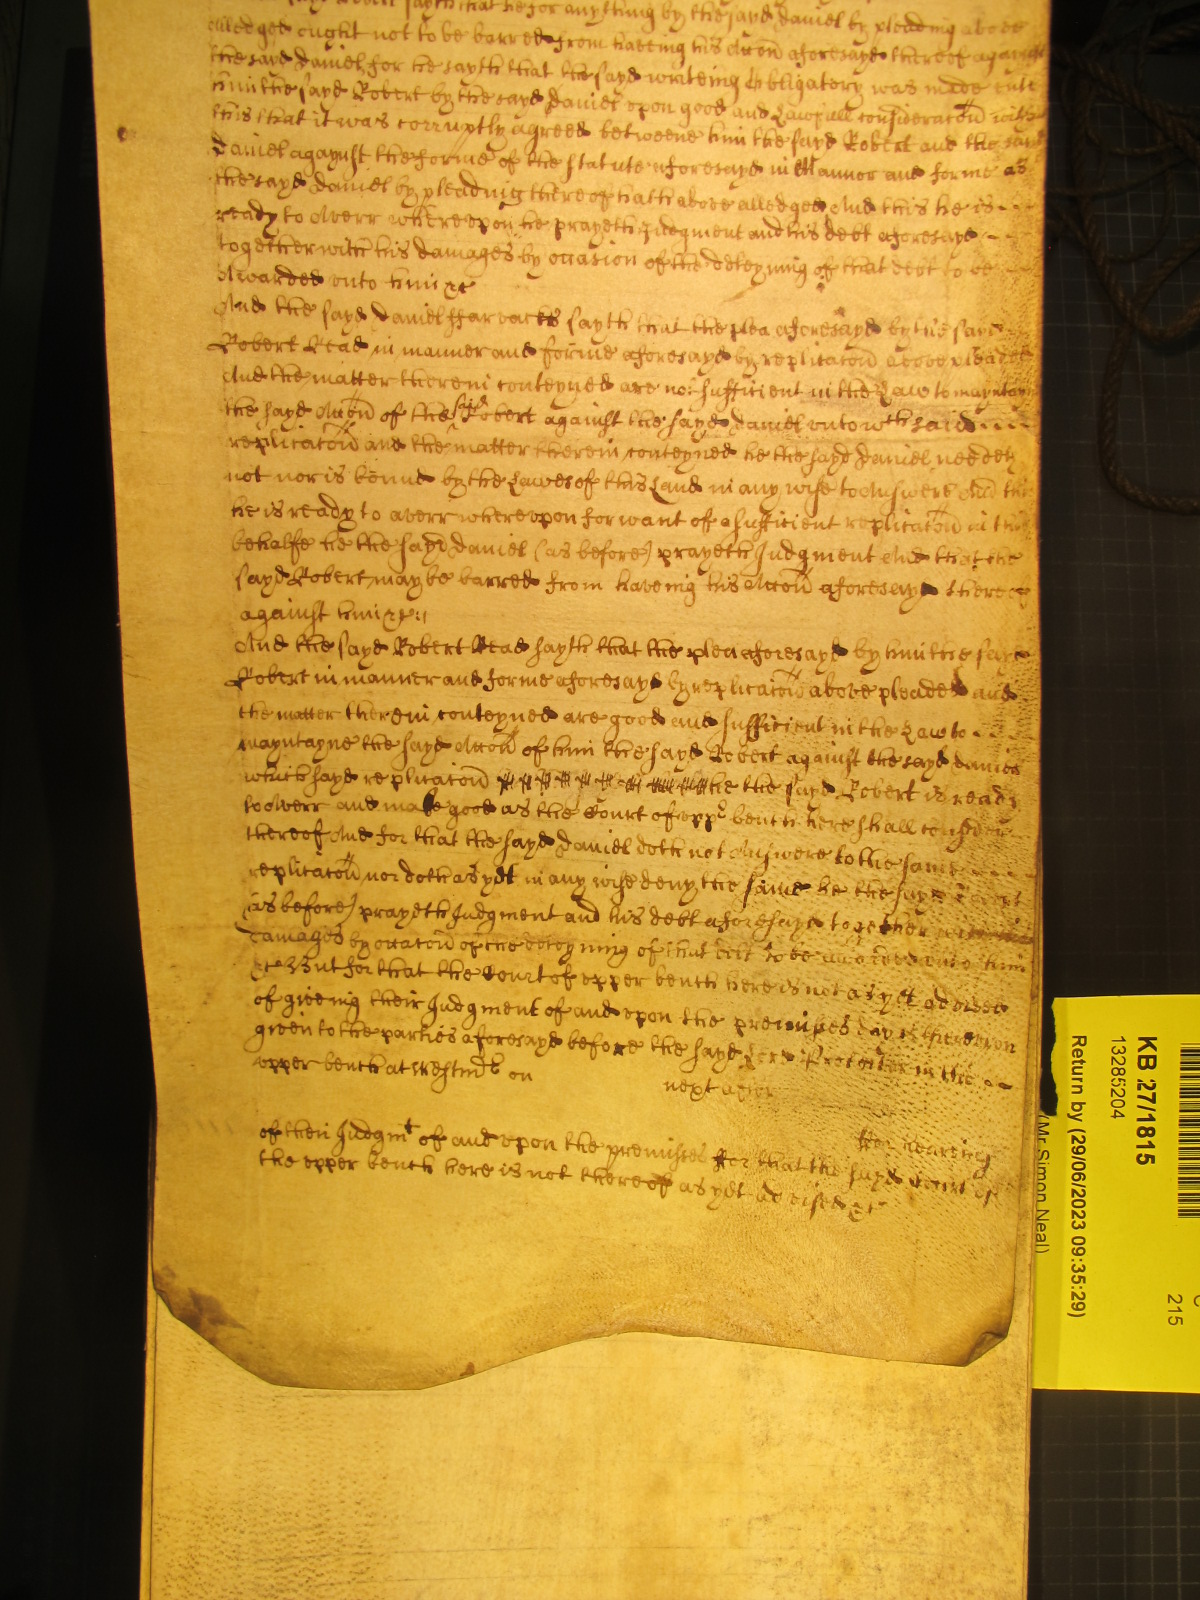 sayd Robert sayth that he for anything by the sayd Daniel by pleading above
alledged ought not to be barred from haveing his Accon aforesayd thereof against
the sayd Daniel for he sayth that the sayd writeing Obligatory was made unto
him the sayd Robert by the sayd Daniel upon good and Lawfull consideracon with
this that it was corruptly agreed betweene him the sayd Robert and the sayd
Daniel agaynst the forme of the statute aforesayd in Manner and forme as
the sayd Daniel by pleading thereof hath above alledged And this he is
ready to Averr whereupon he prayeth Judgment and his debt aforesayd
together with his damages by occasion of the deteyning of that debt to be
Awarded unto him &c
And the sayd Daniel ffarvacks sayth that the plea aforesayd by the sayd
Robert Read in manner and forme aforesayd by replicacon above pleaded
And the matter therein conteyned are not sufficient in the Law to mayntayn
the sayd Accon of the said Robert against the sayd Daniel unto wch said
replicacon and the matter therein conteyned he the sayd Daniel needeth
not nor is bound by the Lawes of this Land in any wise to Answere And this
he is ready to averr whereupon for want of a sufficient replicacon in this
behalfe he the sayd Daniel (as before) prayeth Judgment And that the
sayd Robert may be barred from haveing his Accon aforesayd thereof
against him &c
And the sayd Robert Read sayth that the plea aforesayd by him the sayd
Robert in manner and forme aforesayd by replicacon above pleaded and
the matter therein conteyned are good and sufficient in the Law to
mayntayne the sayd Accon of him the sayd Robert against the sayd Daniel
which sayd replicacon he the sayd Robert is ready
to Averr and make good as the Court of upp bench here shall consider
thereof And for that the sayd Daniel doth not Answere to the same
replicacon nor doth as yet in any wise deny the same he the sayd Robert
(as before) prayeth Judgment and his debt aforesayd together with
damages by occacon of the deteyning of that debt to be awarded unto him
&c But for that the Court of upper bench here is not as yet advised
of giveing their Judgment of and upon the premisses day is thereupon
given to the parties aforesayd before the sayd Lord Protector in the
upper bench at Westmr on next after
ffor heareing
of their Judgmt of and upon the premisses ffor that the sayd Court of
the upper bench here is not thereof as yet advised &c
KB 27/1815
13285204
Return by (29/06/2023 09:35:29)
(Mr Simon Neal)
215